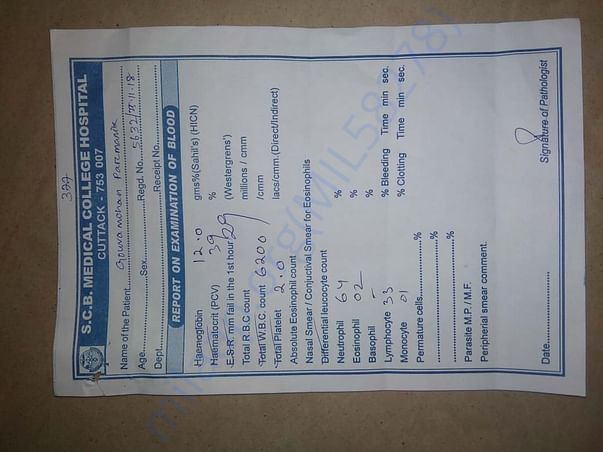 322
S.C.B. MEDICAL COLLEGE HOSPITAL
CUTTACK - 753 007
Name of the Patient Gouramohan Paramanik
Age Sex Regd. No. 5632/ 11.18
Dept Receipt No.
REPORT ON EXAMINATION OF BLOOD
Haemoglobin 12.0 gms%(Sahil's) (HICN)
Haematocrit (PCV) 39 %
E.S.R. mm fail in the 1st hour 29 (Westergrens')
Total R.B.C count millions / cmm
Total W.B.C. count 6200 /cmm
Total Platelet 2.0 lacs/cmm.(Direct/Indirect)
Absolute Eosinophil count
Nasal Smear / Conjuctival Smear for Eosinophils
Differential leucocyte count
Neutrophil 64 %
Eosinophil 02 %
Basophil - %
Lymphocyte 33 % Bleeding Time min sec.
Monocyte 01 % Clotting Time min sec.
Permature cells %
%
%
Parasite M.P. / M.F.
Peripherial smear comment.
Date
Signature of Pathologist